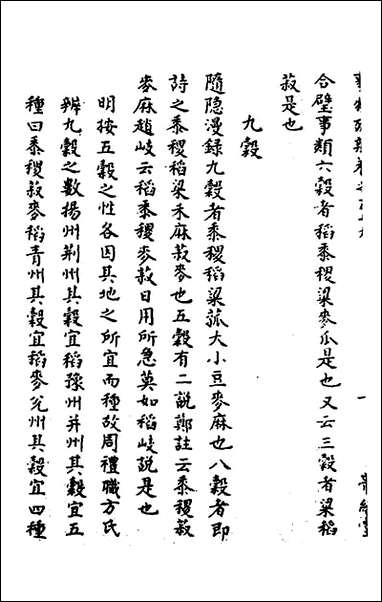 合璧事類六穀者稻黍稷粱麥瓜是也又云三穀者粱稻
菽是也
九穀
隨隱漫錄九穀者黍稷稻粱菰大小豆麥麻也八穀者即
詩之黍稷稻粱禾麻菽麥也五穀有二説鄭註云黍稷菽
麥麻趙岐云稻黍稷麥菽日用所急莫如稻岐説是也
明按五穀之性各因其地之所宜而種故周禮職方氏
辨九穀之數揚州荆州其穀宜稻豫州并州其穀宜五
種曰黍稷菽麥稻青州其穀宜稻麥兖州其穀宜四種